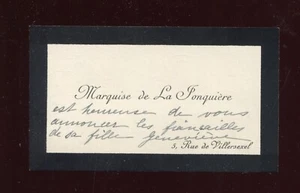 Marquise de La Jonquière
est heureuse de vous
annoncer les fiançailles
de sa fille Geneviève
5, Rue de Villersexel